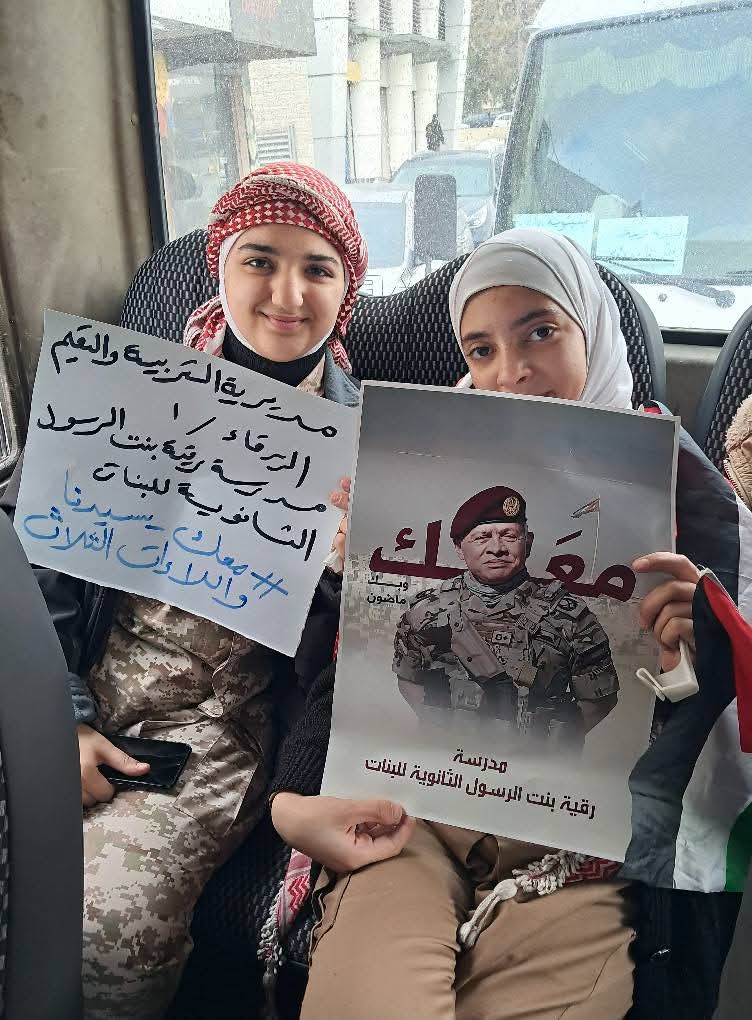 مديرية التربية والتعليم
الزرقاء / ١
مدرسة رقية بنت الرسول
الثانوية للبنات
# معك يسيدنا
واللاءات الثلاث
معك
وبك
ماضون
مدرسة
رقية بنت الرسول الثانوية للبنات